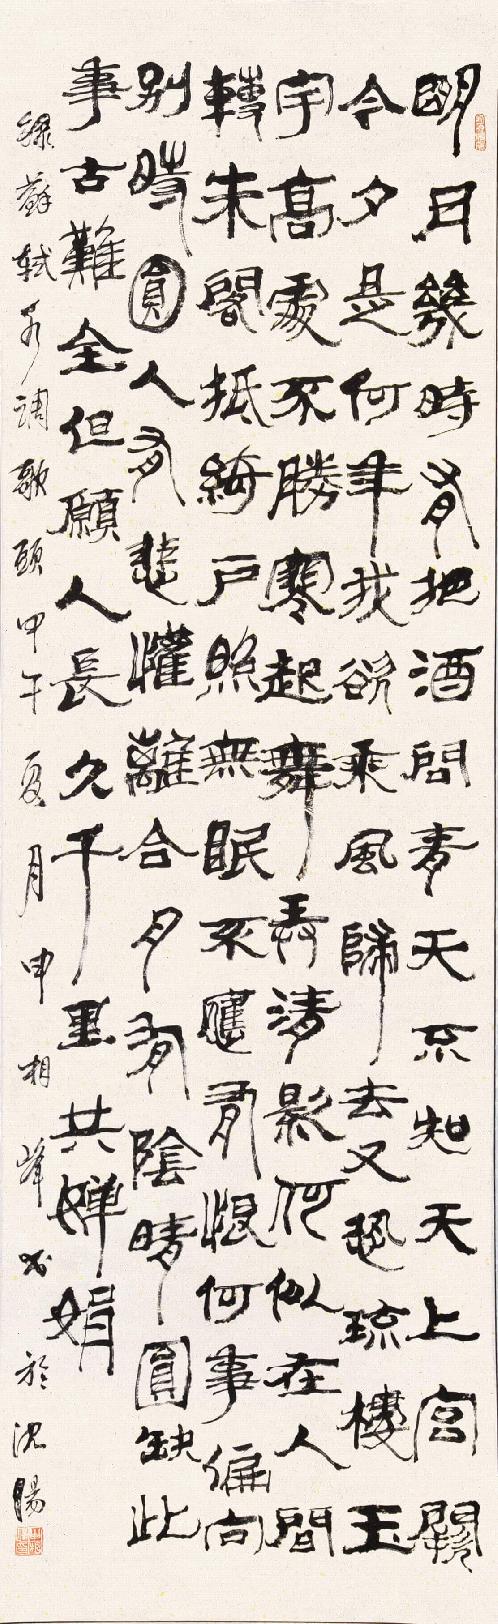 明月幾時有把酒問青天不知天上宮闕
今夕是何年我欲乘風歸去又恐琼樓玉
宇高處不勝寒起舞弄清影何似在人間
轉朱閣抵綺戶照無眠不應有恨何事偏向
别時圓人有悲懽離合月有陰晴圓缺此
事古難全但願人長久千里共嬋娟
錄蘇軾水調歌頭甲午夏月申相峰书於沈陽